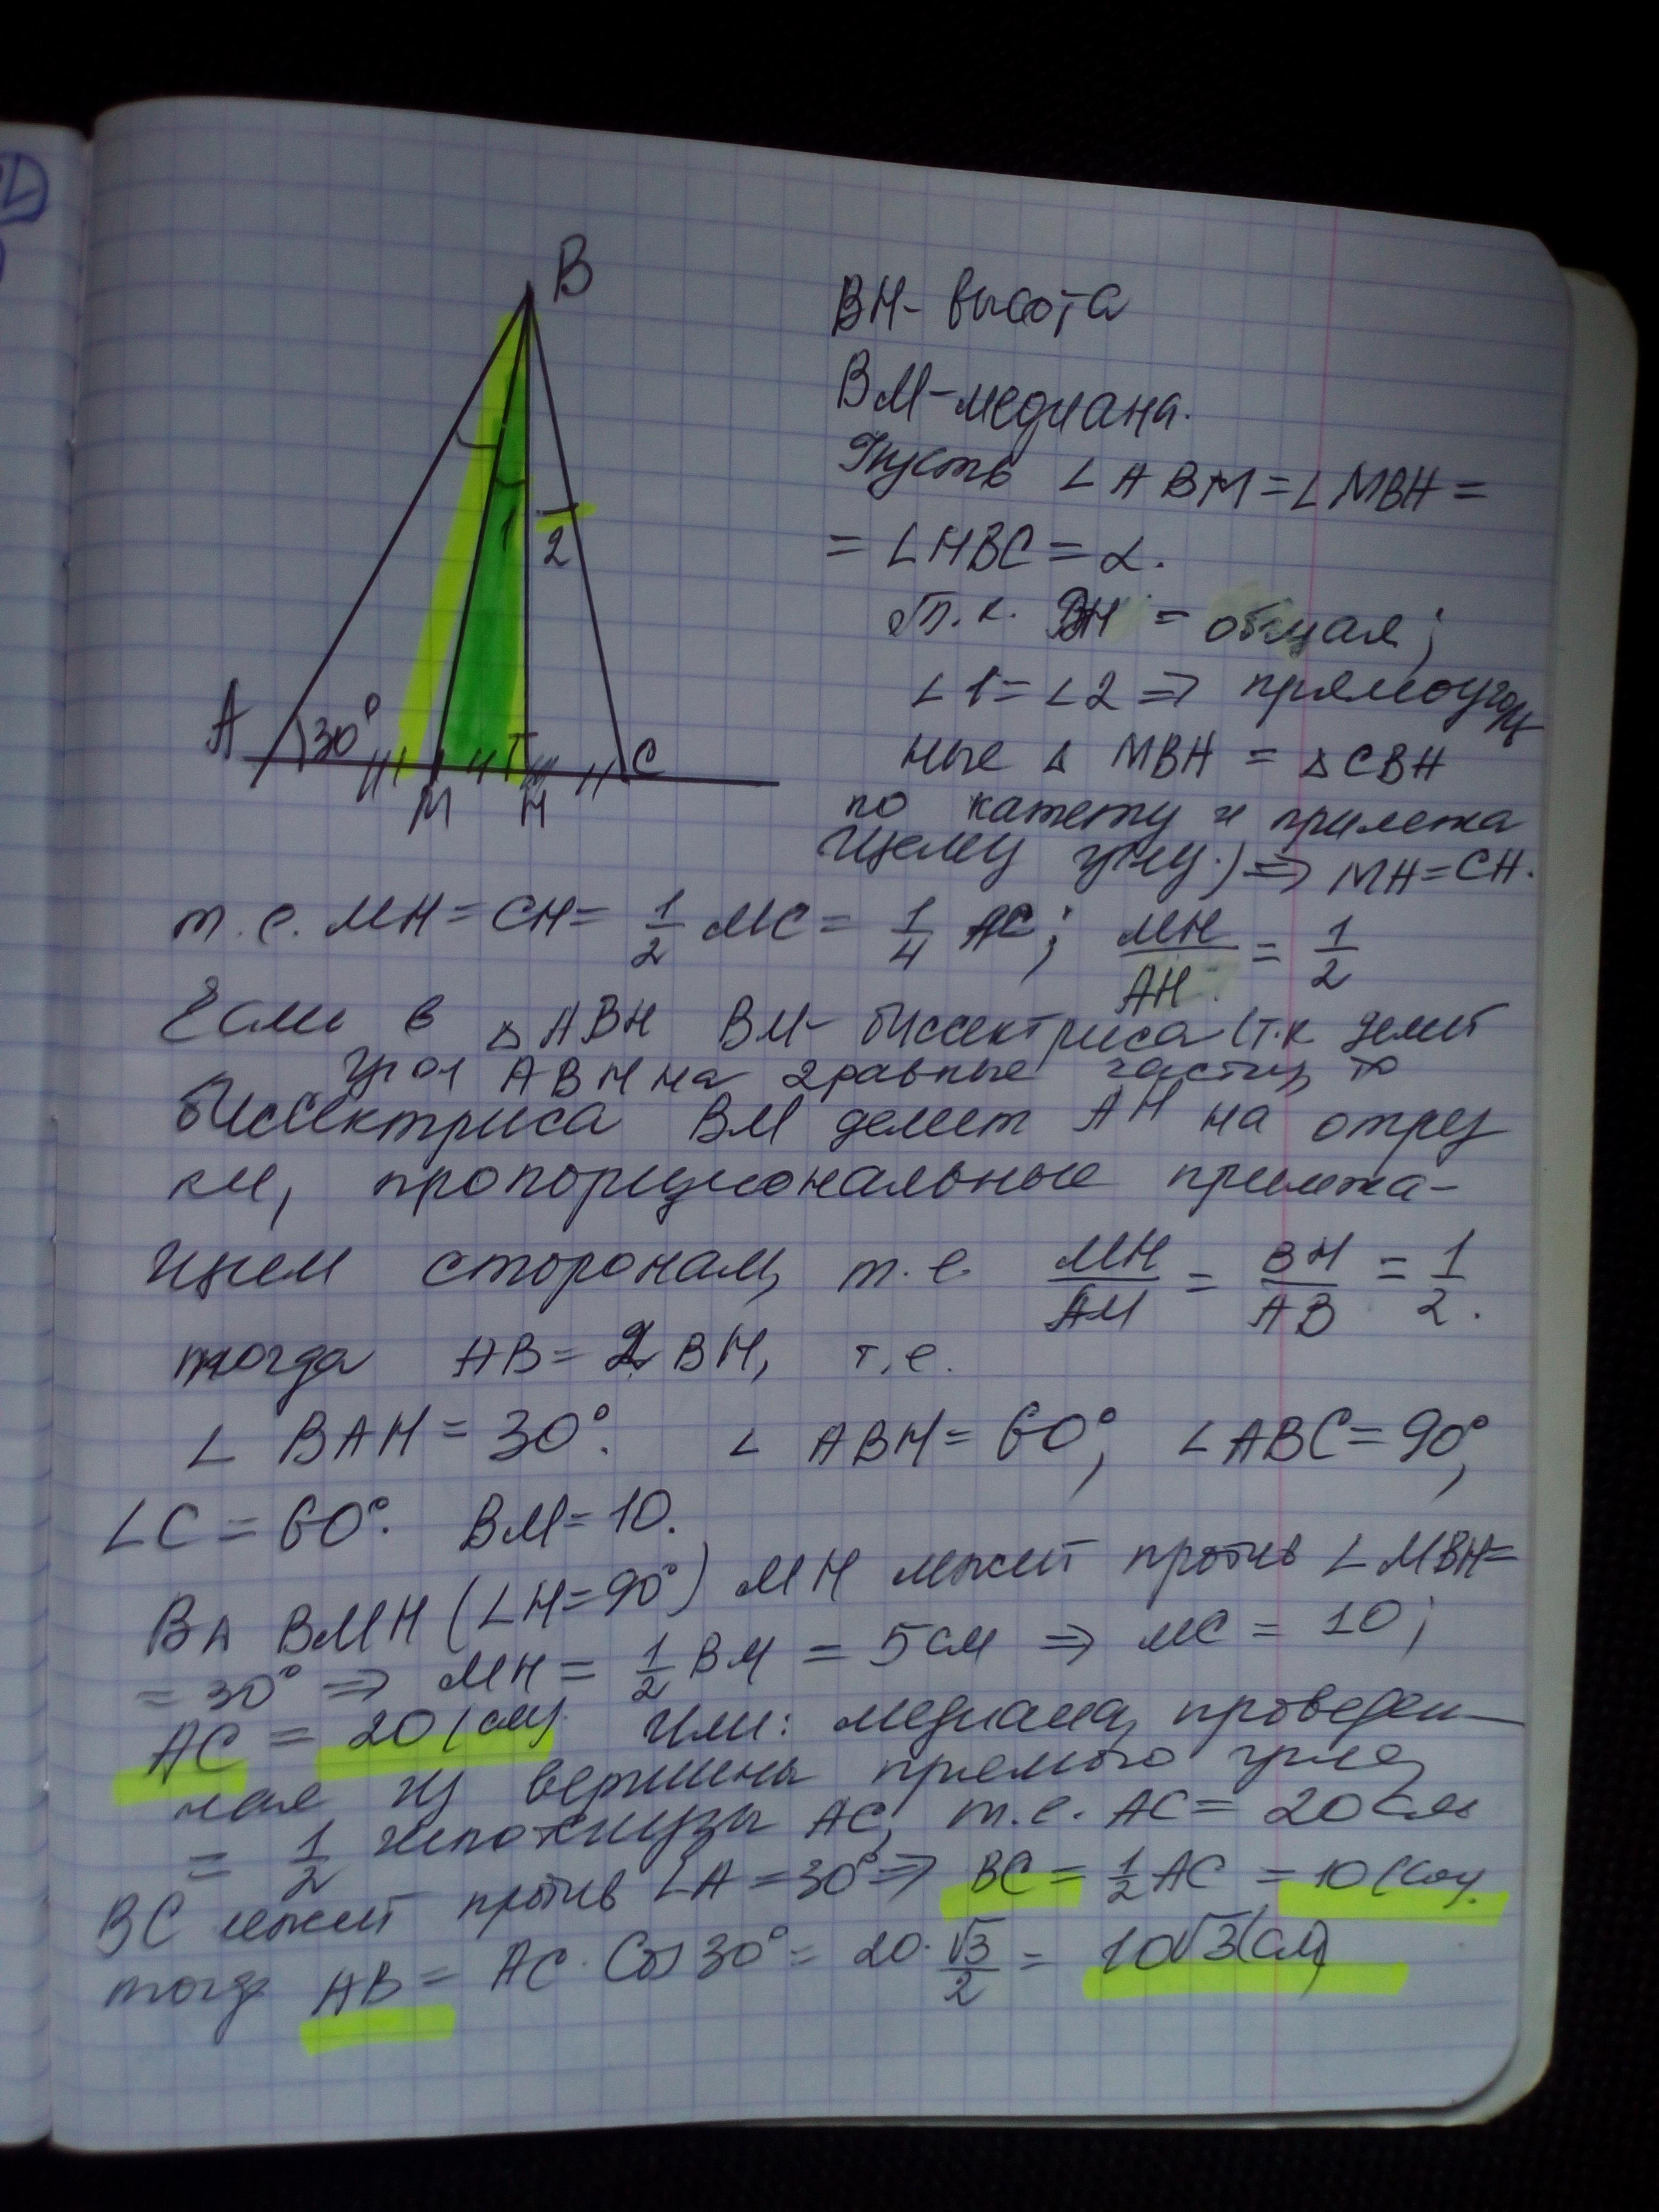 B
A
30°
1
2
M
H
C
BH - высота
BM - медиана.
Пусть ∠ABM = ∠MBH =
= ∠HBC = α.
Т.к. BH = общая;
∠1 = ∠2 ⇒ прямоуголь
ные △ MBH = △CBH
по катету и прилежа
щему углу.) ⇒ MH = CH.
т.е. MH = CH = 1/2 MC = 1/4 AC; MH/AH = 1/2
Если в △ABH BM - биссектриса (т.к делит
угол ABH на 2 равные части, то
биссектриса BM делит AH на отрез
ки, пропорциональные прилежа-
щим сторонам, т.е. MH/AM = BH/AB = 1/2.
тогда AB = 2 BH, т.е.
∠ BAH = 30°. ∠ ABH = 60°, ∠ABC = 90°,
∠C = 60°. BM = 10.
В △ BMH (∠H = 90°) MH лежит против ∠MBH =
= 30° ⇒ MH = 1/2 BM = 5 см ⇒ MC = 10;
AC = 20 (см). Или: медиана, проведен-
ная из вершины прямого угла,
= 1/2 гипотенузы AC, т.е. AC = 20 см
BC лежит против ∠A = 30° ⇒ BC = 1/2 AC = 10 (см).
тогда AB = AC · Cos 30° = 20 · √3/2 = 10√3 (см)